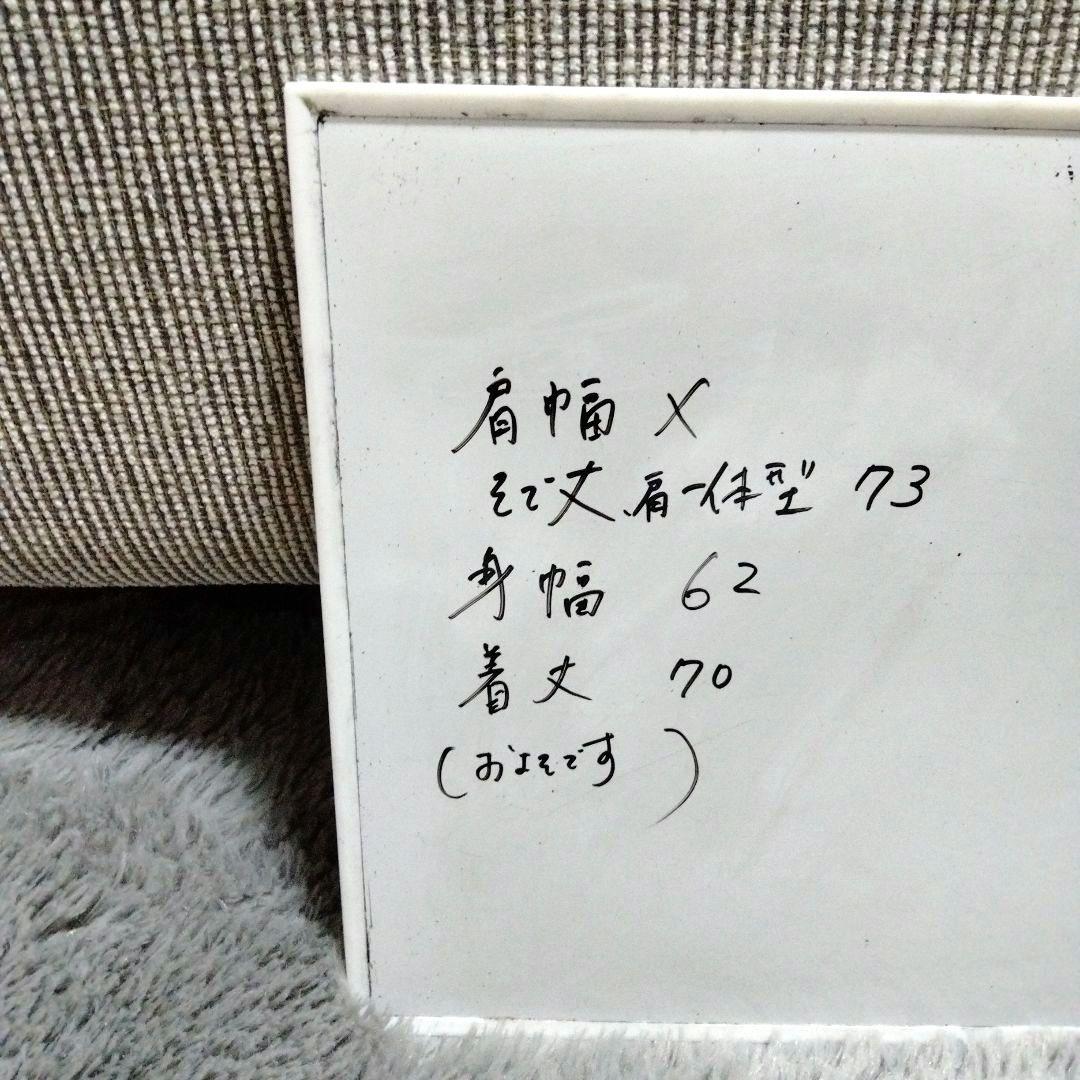 肩幅 ×
そで丈、肩一体型 73
身幅 62
着丈 70
(およそです )